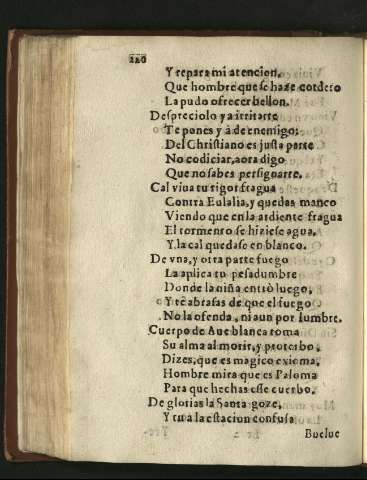 220
Y repara mi atencion,
Que hombre que se haze cordero
La pudo ofrecer bellon.
Despreciolo y a irritarte
Te pones y à de enemigo:
Del Christiano es justa parte
No codiciar, aora digo
Que no sabes persignarte.
Cal viva tu rigor fragua
Contra Eulalia, y quedas manco
Viendo que en la ardiente fragua
El tormento se hiziese agua,
Y la cal quedase en blanco.
De vna, y otra parte fuego
La aplica tu pesadumbre
Donde la niña entrò luego,
Y te abrasas de que el fuego
No la ofenda, ni aun por lumbre.
Cuerpo de Aue blanca toma
Su alma al morir, y proterbo,
Dizes, que es magico exioma,
Hombre mira que es Paloma
Para que hechas este cuerbo.
De glorias la Santa goze,
Y tu a la estacion confusa
Buelue